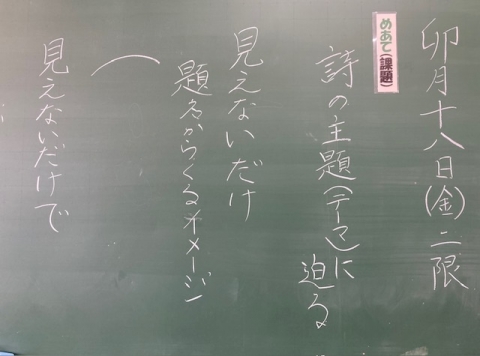 卯月十八日(金)二限
めあて(課題)
詩の主題(テーマ)に
迫る
見えないだけ
題名からくるイメージ
(
見えないだけで